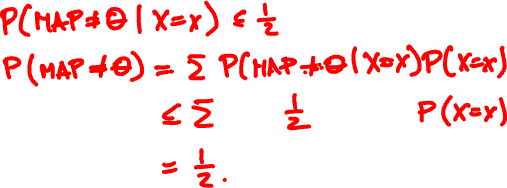 P(MAP≠Θ | X=x) ≤ 1/2
P(MAP≠Θ) = Σ P(MAP≠Θ | X=x) P(X=x)
≤ Σ 1/2 P(X=x)
= 1/2.